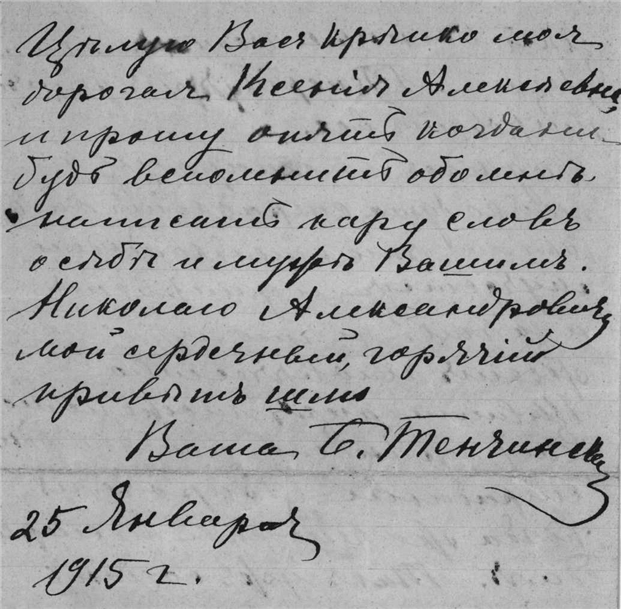 Цѣлую Васъ крѣпко моя
дорогая Ксенія Алексѣевна,
и прошу опять когда ни-
будь вспомнить обо мнѣ
написать пару словъ
о себѣ и мужѣ Вашимъ.
Николаю Александровичу
мой сердечный, горячій
привѣтъ шлю
Ваша Б. Тенчинска
25 Января
1915 г.